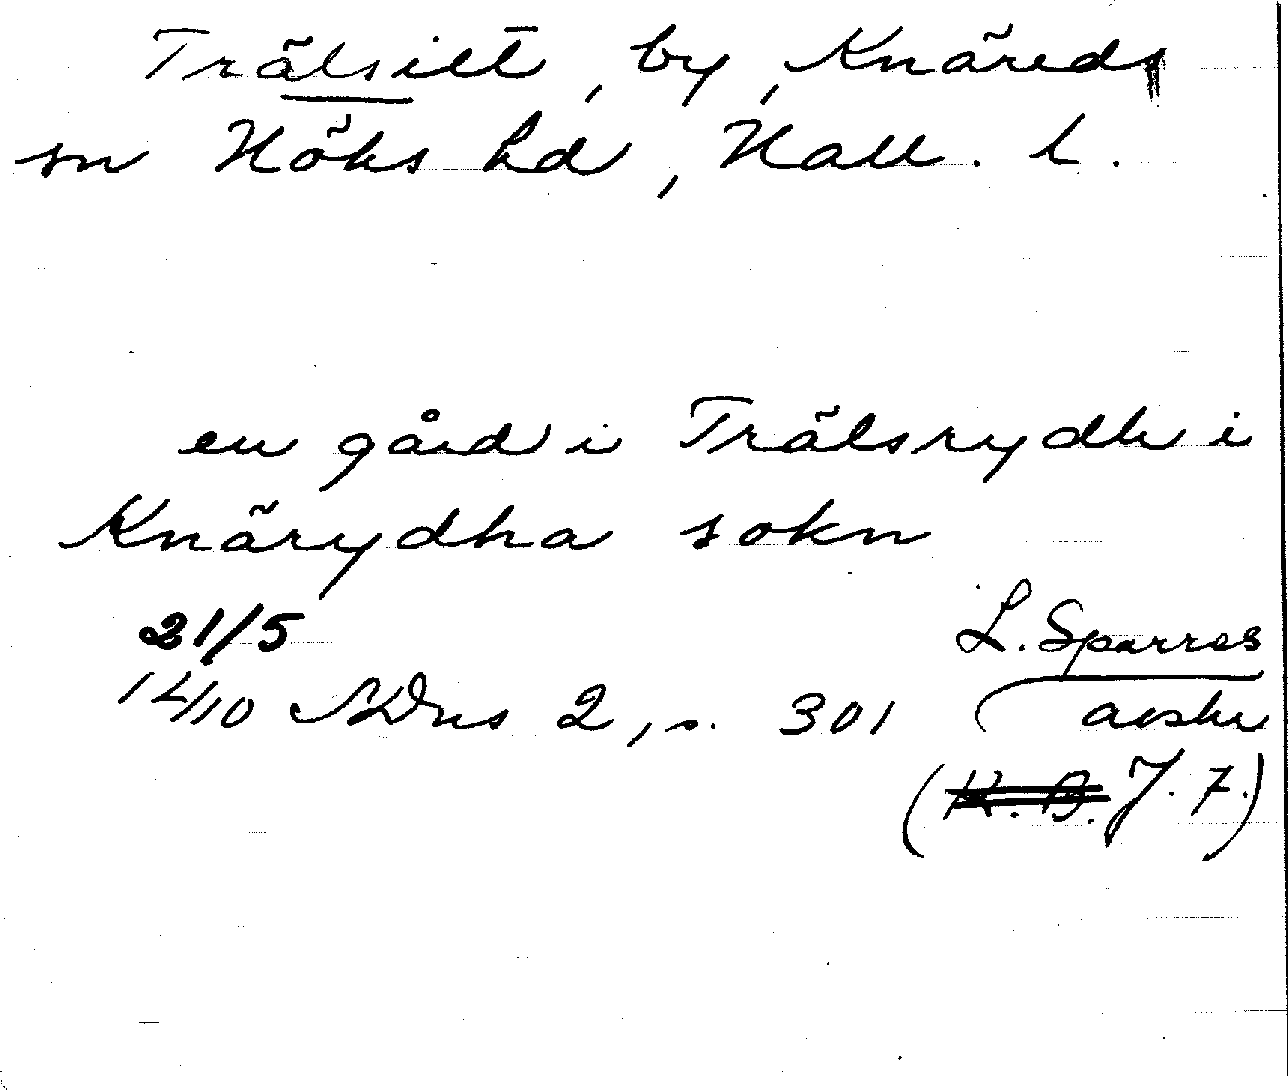 Trälsilt, by, Knäreds
sn Höks hd, Hall. l.
en gård i Trälsrydh i
Knärydha sokn
21/5
14/10 NDns 2, s. 301
L. Sparres
avskr
(K. B. J. F.)